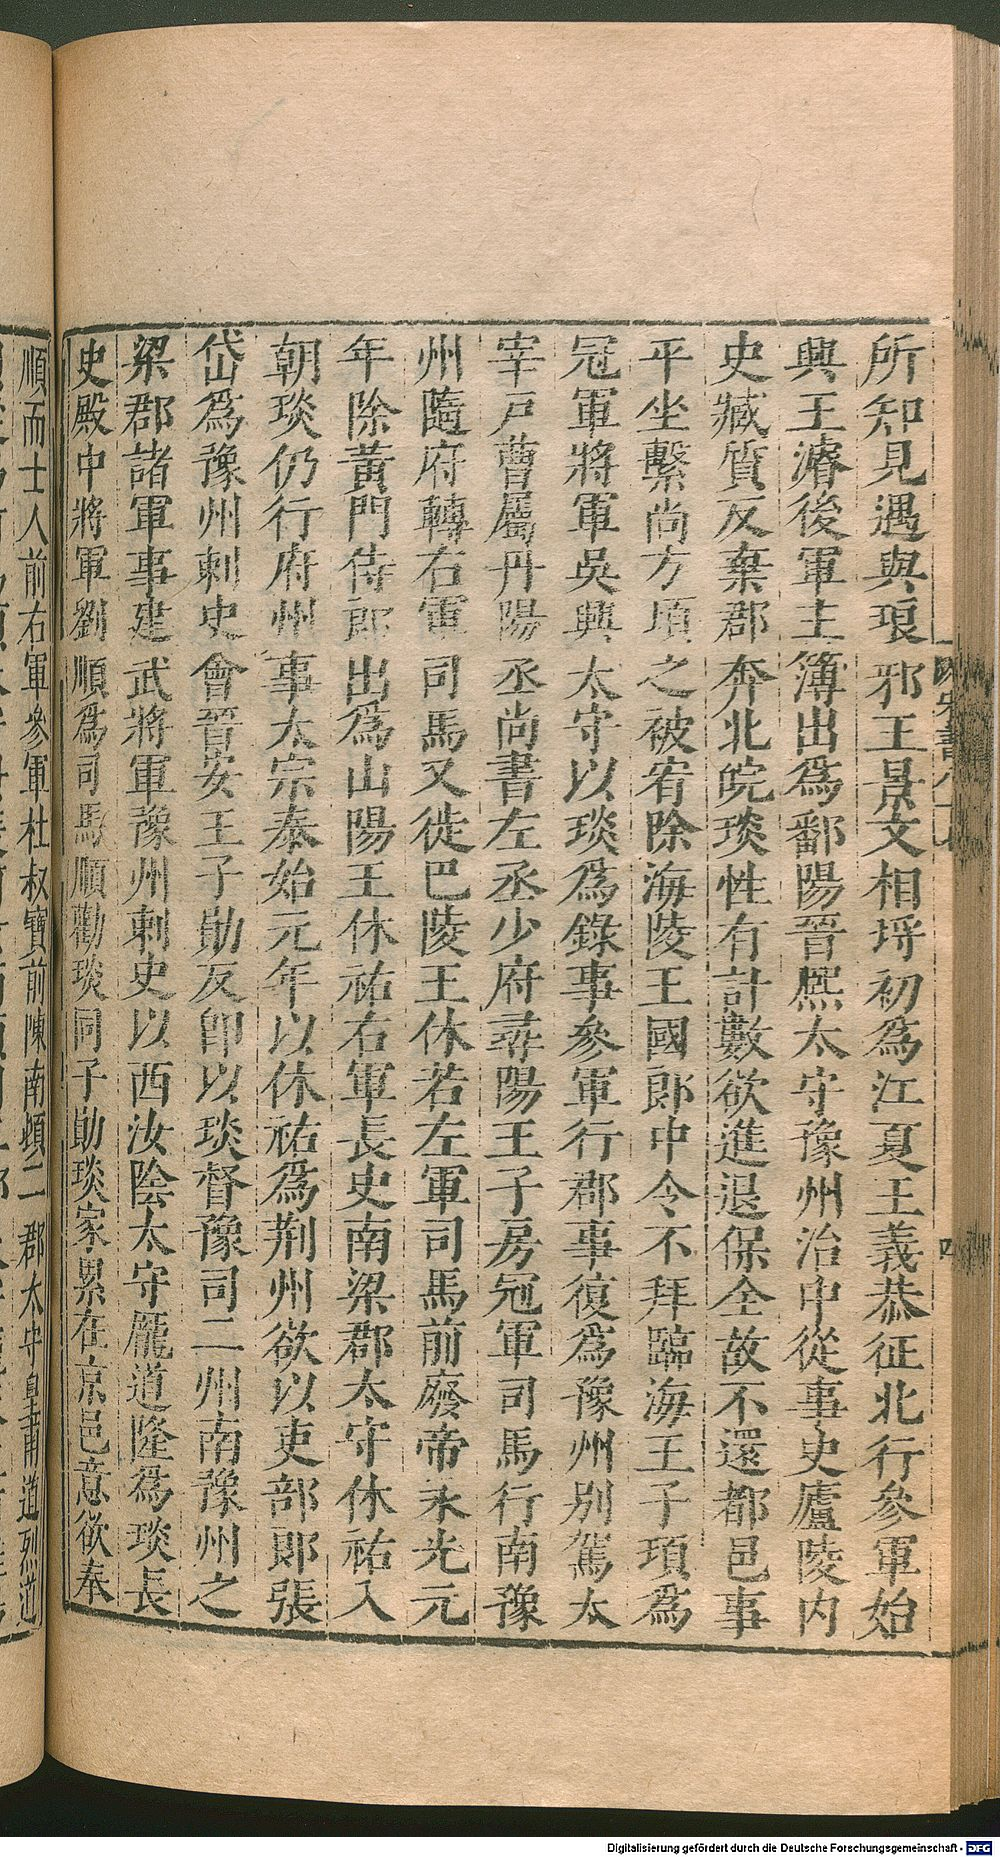 所知見遇與琅邪王景文相埒初為江夏王義恭征北行參軍始
興王濬後軍主簿出為鄱陽晉熙太守豫州治中從事史廬陵內
史臧質反棄郡奔北皖琰性有計數欲進退保全故不還都邑事
平坐繫尚方頃之被宥除海陵王國郎中令不拜臨海王子頊為
冠軍將軍吳興太守以琰為錄事參軍行郡事復為豫州別駕太
宰戸曹屬丹陽丞尚書左丞少府尋陽王子房冠軍司馬行南豫
州隨府轉右軍司馬又徙巴陵王休若左軍司馬前廢帝永光元
年除黃門侍郎出為山陽王休祐右軍長史南梁郡太守休祐入
朝琰仍行府州事太宗泰始元年以休祐為荆州欲以吏部郎張
岱為豫州刺史會晉安王子勛反卽以琰督豫司二州南豫州之
梁郡諸軍事建武將軍豫州刺史以西汝陰太守龐道隆為琰長
史殿中將軍劉順為司馬順勸琰同子勛琰家累在京邑意欲奉
順而士人前右軍參軍杜叔寶前陳南頓二郡太守皇甫道烈道
Digitalisierung gefördert durch die Deutsche Forschungsgemeinschaft - DFG